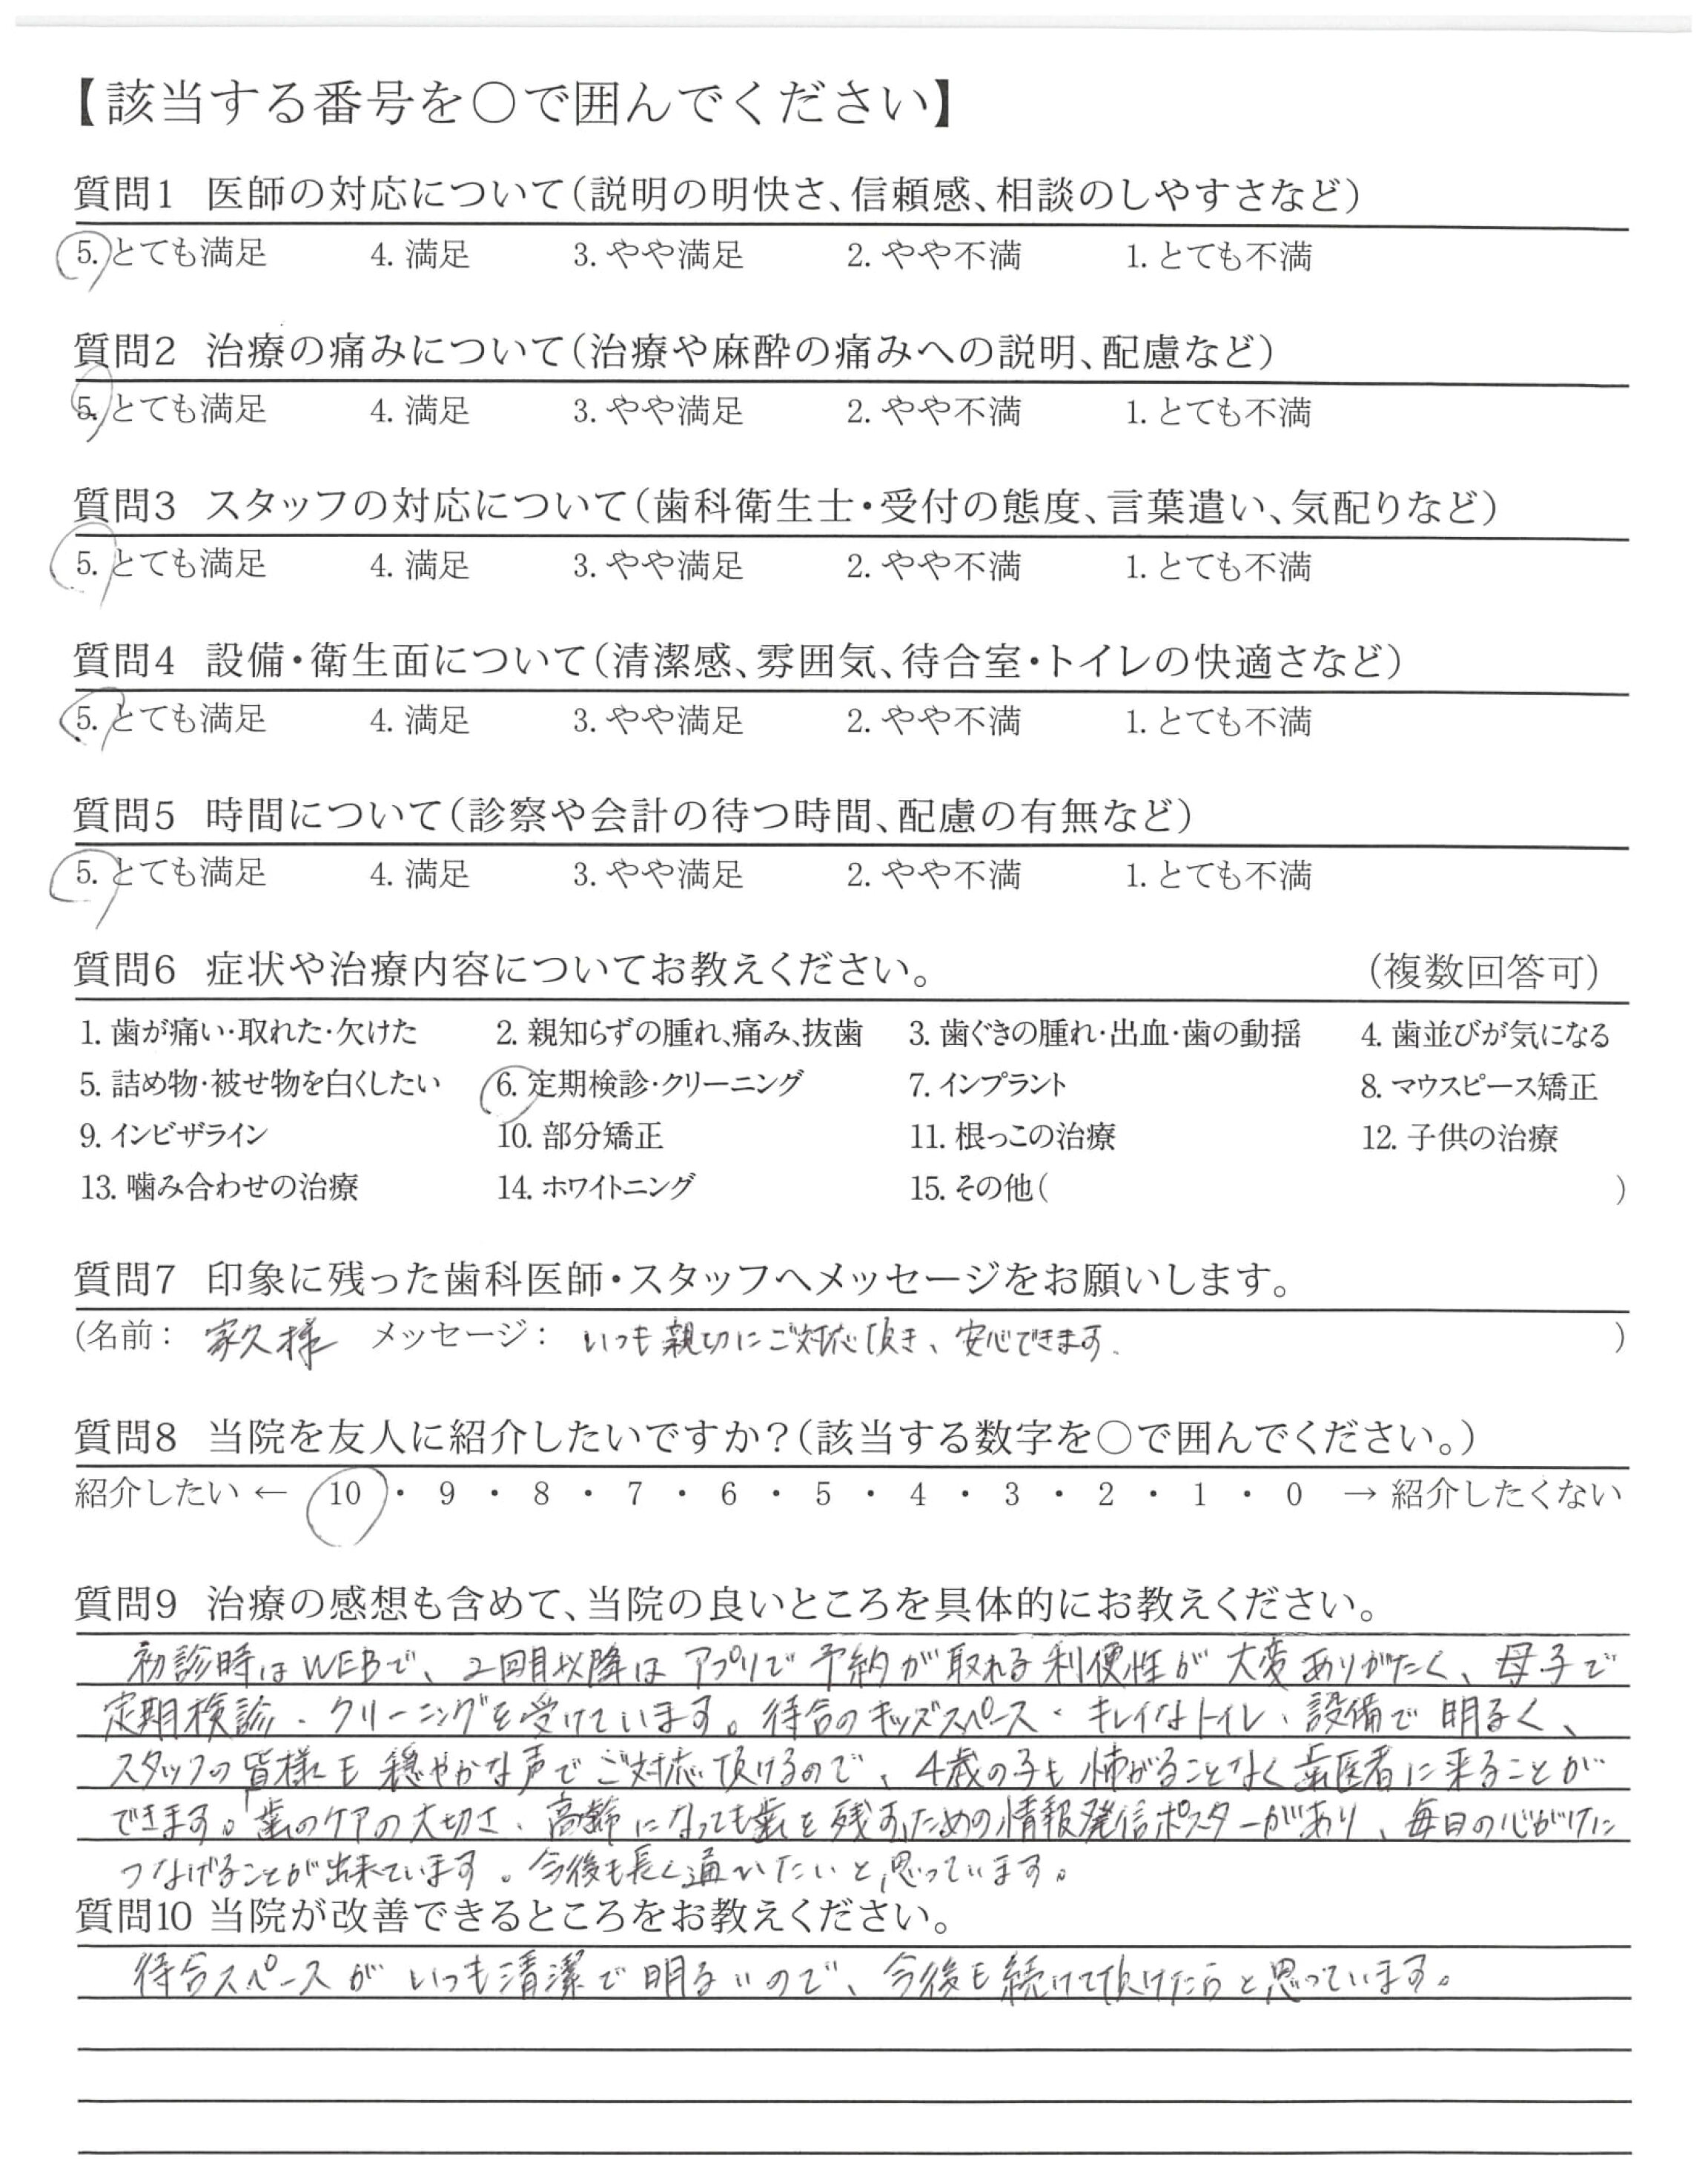 【該当する番号を○で囲んでください】
質問1 医師の対応について(説明の明快さ、信頼感、相談のしやすさなど)
5. とても満足 4. 満足 3. やや満足 2. やや不満 1. とても不満
質問2 治療の痛みについて(治療や麻酔の痛みへの説明、配慮など)
5. とても満足 4. 満足 3. やや満足 2. やや不満 1. とても不満
質問3 スタッフの対応について(歯科衛生士・受付の態度、言葉遣い、気配りなど)
5. とても満足 4. 満足 3. やや満足 2. やや不満 1. とても不満
質問4 設備・衛生面について(清潔感、雰囲気、待合室・トイレの快適さなど)
5. とても満足 4. 満足 3. やや満足 2. やや不満 1. とても不満
質問5 時間について(診察や会計の待つ時間、配慮の有無など)
5. とても満足 4. 満足 3. やや満足 2. やや不満 1. とても不満
質問6 症状や治療内容についてお教えください。 (複数回答可)
1. 歯が痛い・取れた・欠けた 2. 親知らずの腫れ、痛み、抜歯 3. 歯ぐきの腫れ・出血・歯の動揺 4. 歯並びが気になる
5. 詰め物・被せ物を白くしたい 6. 定期検診・クリーニング 7. インプラント 8. マウスピース矯正
9. インビザライン 10. 部分矯正 11. 根っこの治療 12. 子供の治療
13. 噛み合わせの治療 14. ホワイトニング 15. その他( )
質問7 印象に残った歯科医師・スタッフへメッセージをお願いします。
(名前: 家久様 メッセージ: いつも親切にご対応頂き、安心できます. )
質問8 当院を友人に紹介したいですか?(該当する数字を○で囲んでください。)
紹介したい ← 10 ・ 9 ・ 8 ・ 7 ・ 6 ・ 5 ・ 4 ・ 3 ・ 2 ・ 1 ・ 0 → 紹介したくない
質問9 治療の感想も含めて、当院の良いところを具体的にお教えください。
初診時はWEBで、2回目以降はアプリで予約が取れる利便性が大変ありがたく、母子で
定期検診・クリーニングを受けています。待合のキッズスペース・キレイなトイレ、設備で明るく、
スタッフの皆様も穏やかな声でご対応頂けるので、4歳の子も怖がることなく歯医者に来ることが
できます。歯のケアの大切さ、高齢になっても歯を残すための情報発信ポスターがあり、毎日の心がけに
つなげることが出来ています。今後も長く通いたいと思っています。
質問10 当院が改善できるところをお教えください。
待合スペースがいつも清潔で明るいので、今後も続けて頂けたらと思っています。